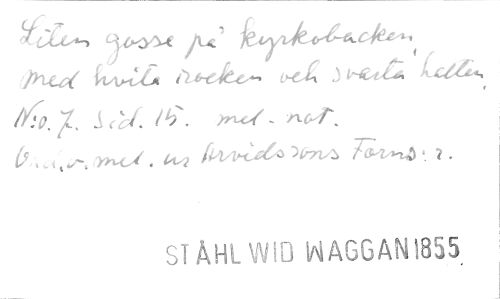 Liten gosse på kyrkobacken,
med hvita rocken och svarta hatten.
N:o. 7. Sid. 15. mel. not.
Ord. o. mel. ur Arvidssons Forns: r.
STÅHL WID WAGGAN 1855